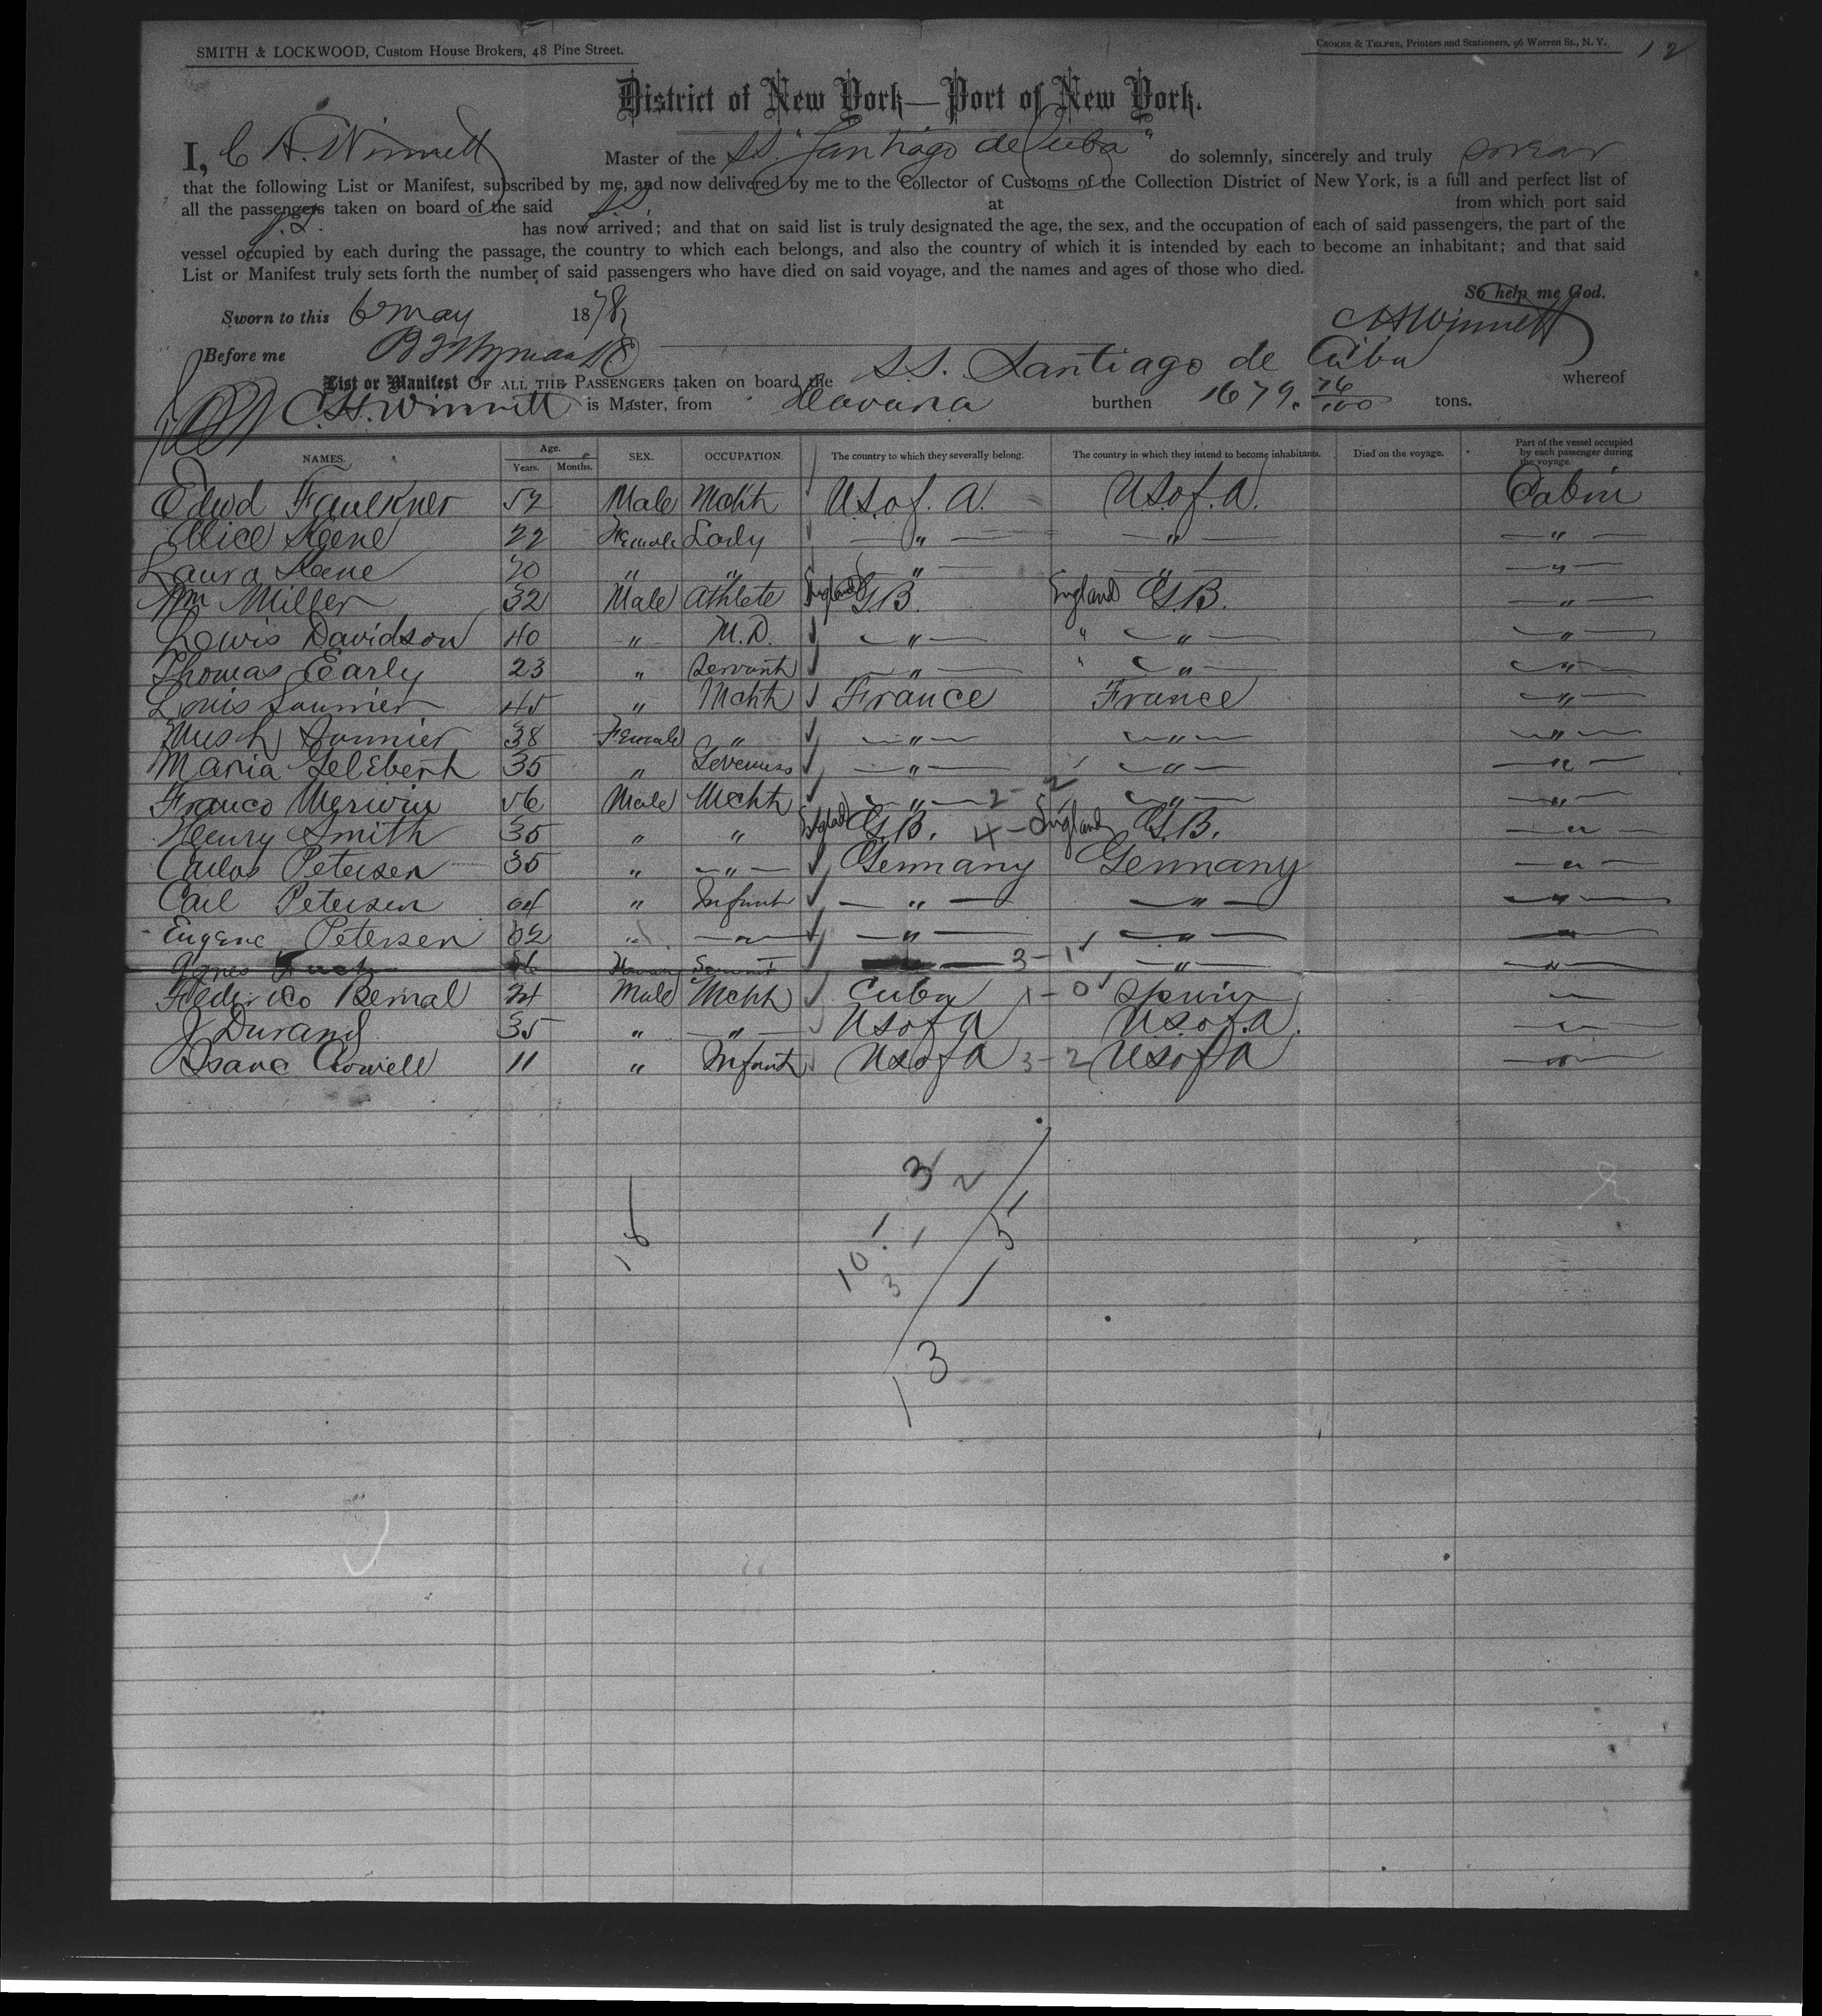 SMITH & LOCKWOOD, Custom House Brokers, 48 Pine Street. CROKER & TELFER, Printers and Stationers, 96 Warren St., N. Y. 12
District of New York—Port of New York.
I, C. H. Winnett Master of the S.S. "Santiago de Cuba" do solemnly, sincerely and truly swear
that the following List or Manifest, subscribed by me, and now delivered by me to the Collector of Customs of the Collection District of New York, is a full and perfect list of
all the passengers taken on board of the said SS at from which port said
S.S. has now arrived; and that on said list is truly designated the age, the sex, and the occupation of each of said passengers, the part of the
vessel occupied by each during the passage, the country to which each belongs, and also the country of which it is intended by each to become an inhabitant; and that said
List or Manifest truly sets forth the number of said passengers who have died on said voyage, and the names and ages of those who died.
So help me God.
Sworn to this 6 may 1878 CHWinnett
Before me
List or Manifest OF ALL THE PASSENGERS taken on board the S.S. Santiago de Cuba whereof
C.H. Winnett is Master, from Havana burthen 1679. 76/100 tons.
NAMES. Age. Years. Months. SEX. OCCUPATION. The country to which they severally belong. The country in which they intend to become inhabitants. Died on the voyage. Part of the vessel occupied by each passenger during the voyage.
Edwd Faulkner 52 Male Mcht U.S. of. A. U.S. of. A. Cabin
Alice Keene 22 Female Lady " " "
Laura Keene 20 " " " " "
Wm Miller 32 Male Athlete England G.B. England G.B. "
Lewis Davidson 40 " M.D. " " " "
Thomas Early 23 " Servant " " " "
Louis Saunier 45 " Mcht France France "
Saunier 38 Female " " " "
Maria 35 " " " "
Franco 56 Male Mcht " 2-2 " "
Henry Smith 35 " " England G.B. 4-0 England G.B. "
Carlos Petersen 35 " " Germany Germany "
Carl Petersen 04 " Infant " " "
Eugene Petersen 02 " " " " "
Agnes 3-1 " "
Federico Bernal 24 Male Mcht Cuba 1-0 Spain
J Durand 35 " " U S of A U.S. of. A. "
Isaac Crowell 11 " Infant U S of A 3-2 U S of A "
3 2
1 1 5
10 3 1
16
13